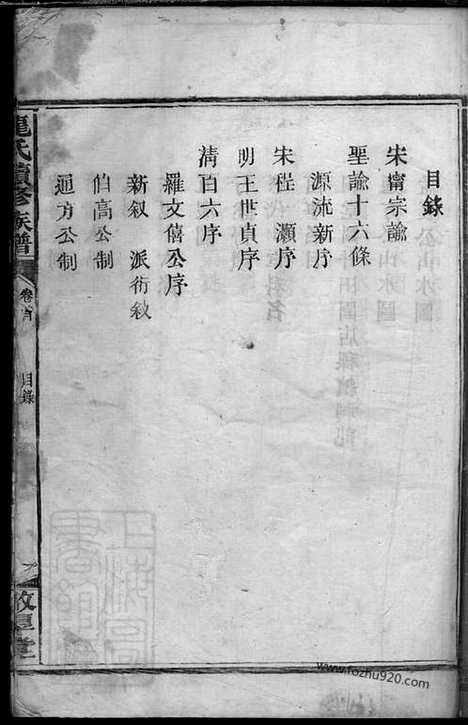 目錄
宋甯宗諭
聖諭十六條
源流新序
宋程灝序
明王世貞序
清百六序
羅文僖公序
新叙 派術叙
伯高公制
通方公制
龍氏續修族譜
卷首
目錄
敦厚堂
www.fozhu920.com